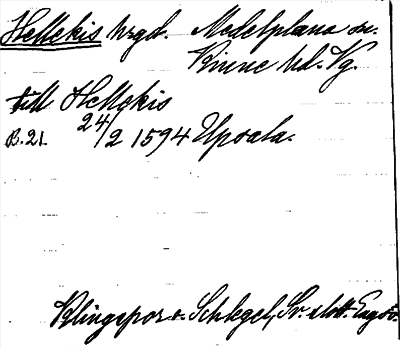 Hellekis hrgd. Medelplana sn.
Kinne hd. Vg.
till Hellekis
B.21. 24/2 1594 Upsala.
Klingspor o. Schlegel, Sv. slott. Engsö.